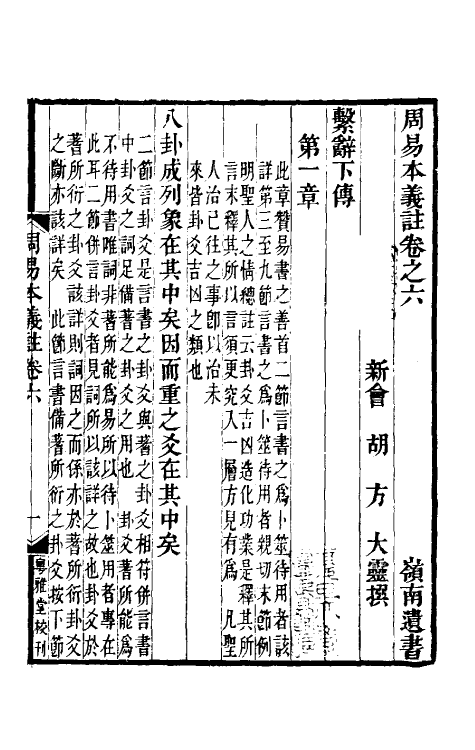 周易本義註卷之六　嶺南遺書
新會　胡　方　大靈撰
繫辭下傳
第一章
此章贊易書之善首二節言書之爲卜筮待用者該
詳第三至九節言書之爲卜筮待用者親切末節例
明聖人之情總註云卦爻吉凶造化功業是釋其所
言末釋其所以言須更究入一層方見有爲　凡聖
人治已往之事卽以治未
來皆卦爻吉凶之類也
八卦成列象在其中矣因而重之爻在其中矣
二節言卦爻是言書之卦爻與蓍之卦爻相符併言書
中卦爻之詞足備蓍之卦爻之用也　卦爻蓍所能爲
不待用書唯詞非蓍所能爲易所以待卜筮用者專在
此耳二節併言卦爻者見詞所以該詳之故也卦爻於
蓍所衍之卦爻該詳則詞因之而係亦於蓍所衍卦爻
之斷亦該詳矣　此節言書備蓍所衍之卦爻按下節
周易本義註卷六　一　粵雅堂校刊